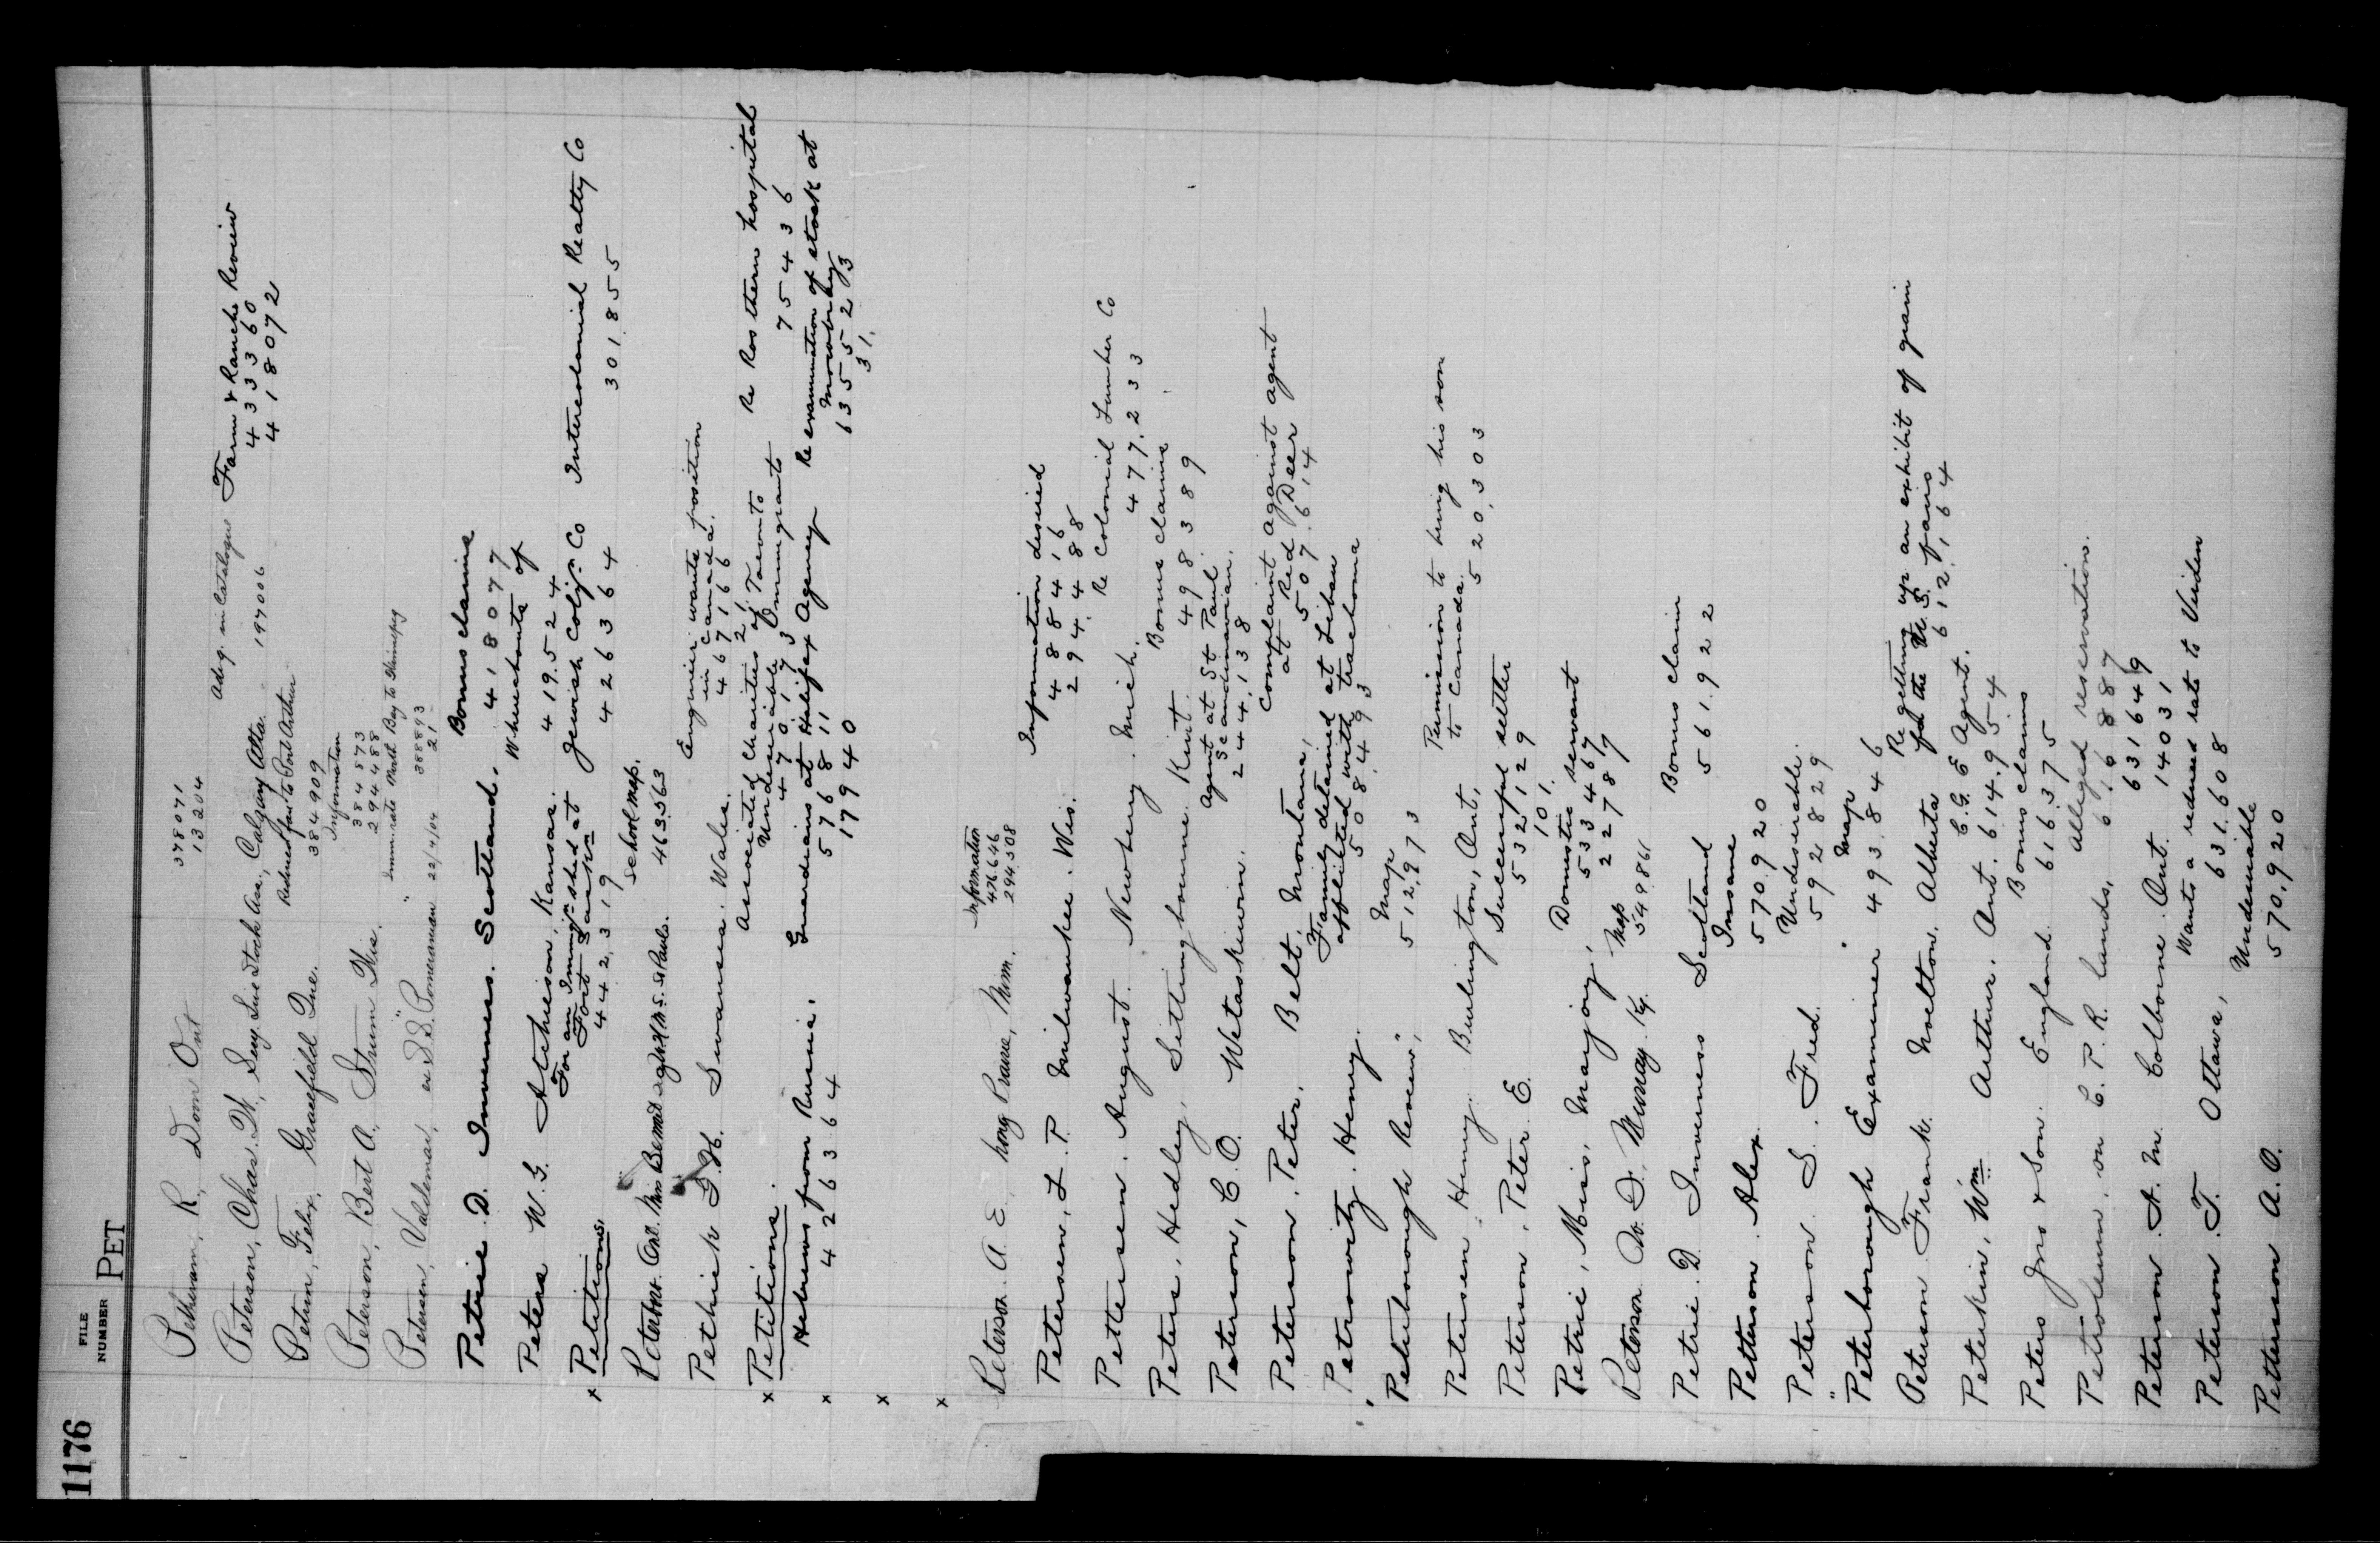 1176
FILE
NUMBER PET
Petheram, R, Dom Ont 378071
13204
Peterson, Chas. W, Secy. Live Stock Ass., Calgary Alta. Advg. in Catalogue 197006 Farm & Ranche Review
433360
418072
Petrin, Felix, Gracefield Que. Reduced fare to Port Arthur
384909
Peterson, Bert A, Strum Wis. Information
384573
294488
Petersen, Valdemar, ex S.S. "Pomeranian" 22/4/04 Imm. rate North Bay to Winnipeg
388893
21
Petrie D. Inverness. Scotland. Bonus claims
418077
Peters W. G. Atcheison, Kansas. Whereabouts of
419.524
x Petitions. For an Immig. shed at
Fort Sask'n
442,319
Jewish Coliz. Co
426364
Intercolonial Realty Co
301,855
Peterboro. Ont. Miss Bennet School map.
463563
Pethick G. H. Swansea. Wales. Engineer wants position
in Canada.
467166
21
x Petitions. Associated Charities of Toronto
Undesirable Immigrants
470173
Re Rosthern hospital
75436
x Hebrews from Russia.
426364
Guardians at Halifax Agency
576811
179440
Re examination of stock at
635523
31,
x
x
Peterson A. E. Long Prairie, Minn. Information
476646
294,508
Petersen, L. P. Milwaukee. Wis. Information desired
488416
294.488
Pettersen. August. Newberry. Mich. Re Colonial Lumber Co
477,233
Peters, Hedley, Sittingbourne. Kent. Bonus claims
498389
Peterson, C. O. Wetaskiwin. Agent at St Paul
Scandinavian.
244,138
Peterson, Peter. Belt, Montana, Complaint against agent
at Red Deer
507,614
Petrowitz. Henry. Family detained at Libau
afflicted with trachoma
508,493
"Peterborough Review", Map
512,973
Petersen, Henry. Burlington, Ont, Permission to bring his son
to Canada.
520,303
Peterson, Peter E. Successful settler
532,129
101.
Petrie, Miss, Marjory, Domestic servant
533467
22787
Peterson W. D. Murray. Ky. Map
549861
Petrie. D Inverness Scotland Bonus claim
561.922
Petterson. Alex. Insane
570.920
Peterson. S. Fred. Undesirable.
592829
"Peterborough Examiner" Map
493.846
Peterson Frank. Nolton, Alberta Re getting up an exhibit of grain
for the U.S. fairs
612,164
Peterkin, Wm Arthur. Ont. C.G.E Agent.
614.954
Peters Jno & Son. England. Bonus claims
616375
Petroleum, on C. P. R. lands, Alleged reservation.
616887
Peterson A. M. Colborne. Ont. 631649
14031
Peterson. T. Ottawa, Wants a reduced rate to Virden
631.608
Petterson A. O. Undesirable
570,920